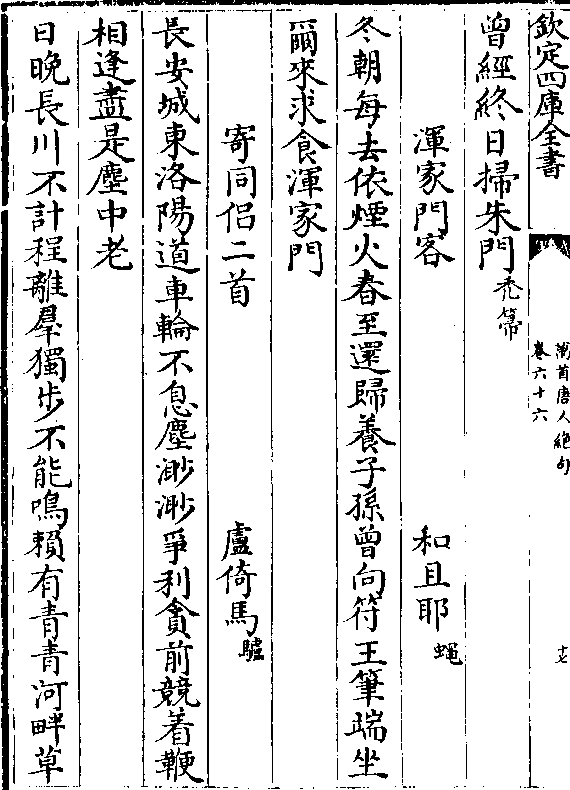 欽定四庫全書
萬首唐人絶句
卷六十六
十七
曾經終日掃朱門禿箒
渾家門客 和且耶蝇
冬朝每去依煙火春至還歸養子孫曾向符王筆端坐
爾來求食渾家門
寄同侣二首 盧倚馬驢
長安城東洛陽道車輪不息塵渺渺爭利貪前競着鞭
相逢盡是塵中老
日晚長川不計程離羣獨步不能鳴賴有青青河畔草